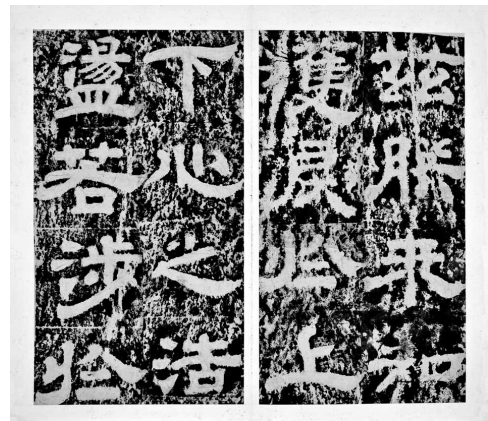 茲朕未知
獲戾於上
下心之浩
盪若涉於